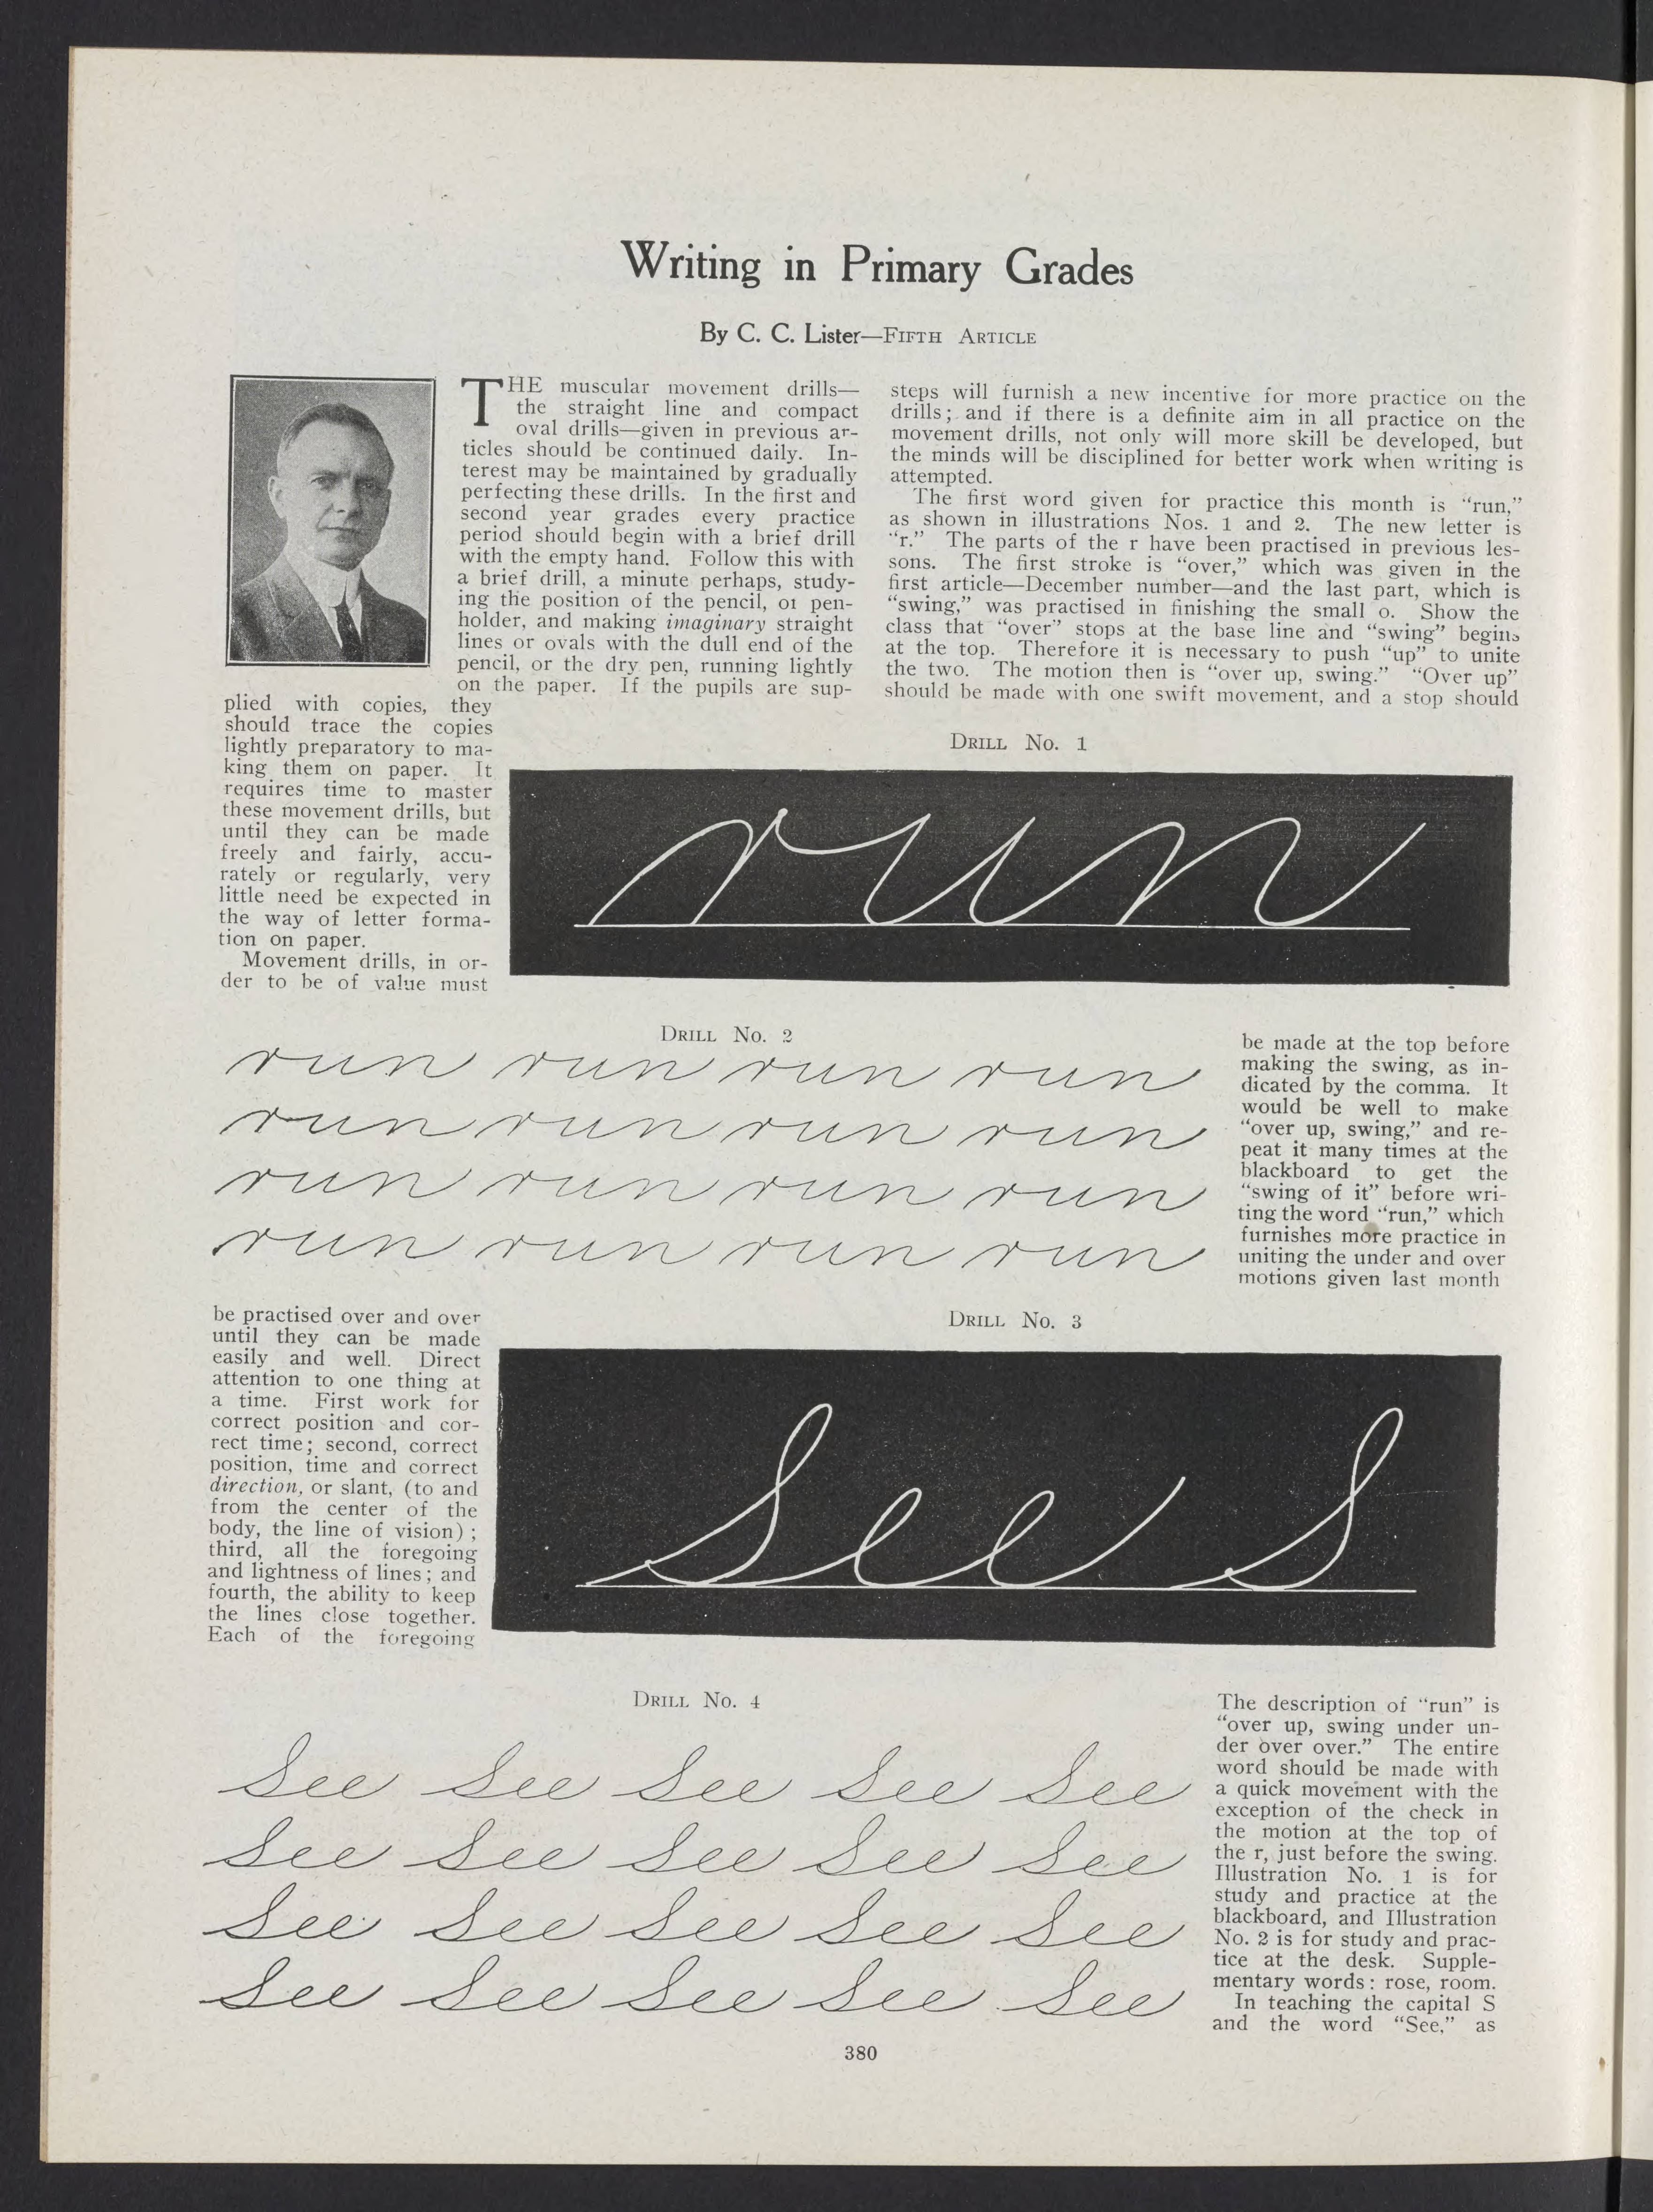 Writing in Primary Grades
By C. C. Lister—Fifth Article
THE muscular movement drills—
the straight line and compact
oval drills—given in previous ar-
ticles should be continued daily. In-
terest may be maintained by gradually
perfecting these drills. In the first and
second year grades every practice
period should begin with a brief drill
with the empty hand. Follow this with
a brief drill, a minute perhaps, study-
ing the position of the pencil, or pen-
holder, and making imaginary straight
lines or ovals with the dull end of the
pencil, or the dry pen, running lightly
on the paper. If the pupils are sup-
plied with copies, they
should trace the copies
lightly preparatory to ma-
king them on paper. It
requires time to master
these movement drills, but
until they can be made
freely and fairly, accu-
rately or regularly, very
little need be expected in
the way of letter forma-
tion on paper.
Movement drills, in or-
der to be of value must
be practised over and over
until they can be made
easily and well. Direct
attention to one thing at
a time. First work for
correct position and cor-
rect time; second, correct
position, time and correct
direction, or slant, (to and
from the center of the
body, the line of vision);
third, all the foregoing
and lightness of lines; and
fourth, the ability to keep
the lines close together.
Each of the foregoing
steps will furnish a new incentive for more practice on the
drills; and if there is a definite aim in all practice on the
movement drills, not only will more skill be developed, but
the minds will be disciplined for better work when writing is
attempted.
The first word given for practice this month is "run,"
as shown in illustrations Nos. 1 and 2. The new letter is
"r." The parts of the r have been practised in previous les-
sons. The first stroke is "over," which was given in the
first article—December number—and the last part, which is
"swing," was practised in finishing the small o. Show the
class that "over" stops at the base line and "swing" begins
at the top. Therefore it is necessary to push "up" to unite
the two. The motion then is "over up, swing." "Over up"
should be made with one swift movement, and a stop should
Drill No. 1
run
Drill No. 2
run run run run
run run run run
run run run run
run run run run
be made at the top before
making the swing, as in-
dicated by the comma. It
would be well to make
"over up, swing," and re-
peat it many times at the
blackboard to get the
"swing of it" before wri-
ting the word "run," which
furnishes more practice in
uniting the under and over
motions given last month
Drill No. 3
See S
Drill No. 4
See See See See See
See See See See See
See See See See See
See See See See See
The description of "run" is
"over up, swing under un-
der over over." The entire
word should be made with
a quick movement with the
exception of the check in
the motion at the top of
the r, just before the swing.
Illustration No. 1 is for
study and practice at the
blackboard, and Illustration
No. 2 is for study and prac-
tice at the desk. Supple-
mentary words: rose, room.
In teaching the capital S
and the word "See," as
380